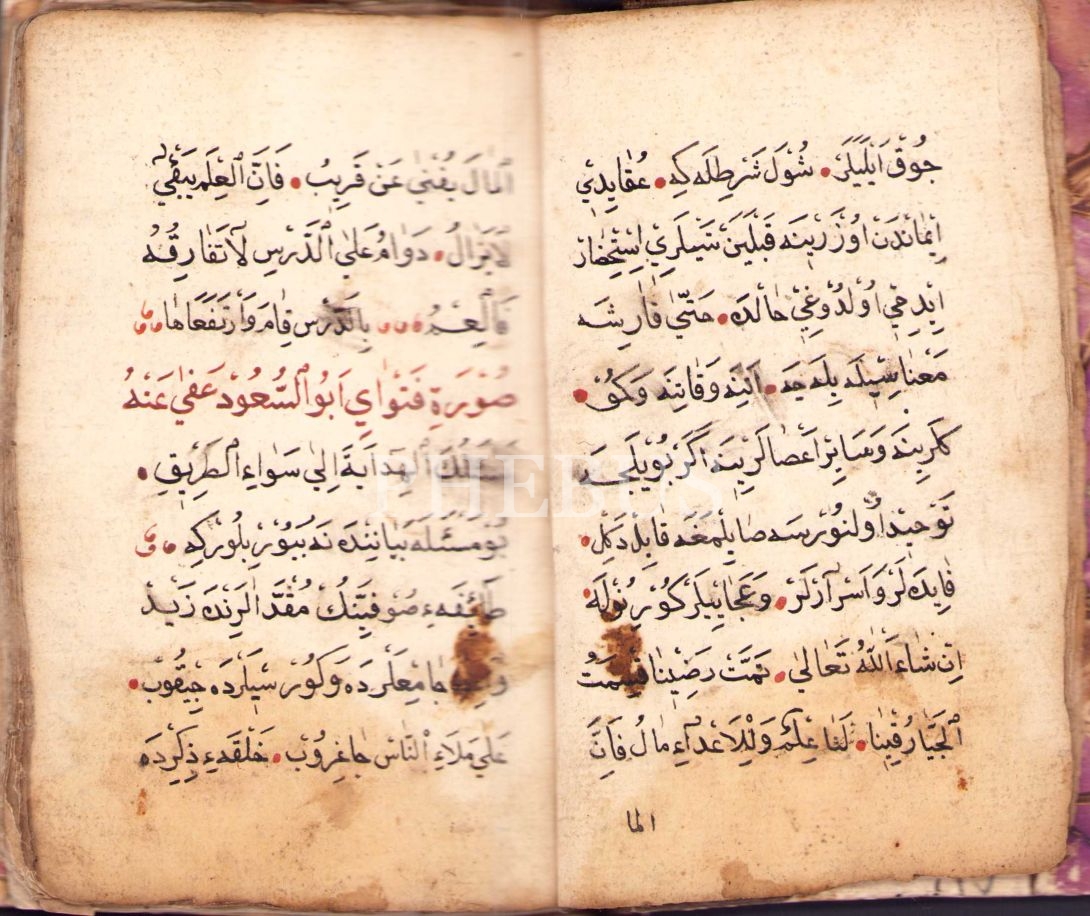 جُوقْ اَيْلَيَلَرْ. شُولْ شَرْطِلَه كِه. عَقَايِدِي
اِيمَانْدَنْ اُوزْرَيْنَه قَبْلَيَنْ اِسْتِحْضَارْ
اِيْدِمِي اُولْدُوغِي حَالْدَه. حَتَّى قَارِشَه
مَعْنَاسِيلَه بِلَه جَه. اَتِنَه وَقَانِنَه وَكَمُوكْ.
لَرِينَه وَسَائِرْ اَعْضَالَرِينَه اَكَرْ بُويْلَجَه
تَوْحِيدْ اُولُنُورْسَه صَايِلْمَغَه قَابِلْ دَكِلْ.
فَايِدَه لَرْ وَاَسْرَارْلَرْ. وَعَجَايِبْلَرْ كُورِنُولَه.
اِنْ شَاءَ اللّٰهُ تَعَالٰى. تَمَّتْ رَضِينَا قِسْمَةَ
الْجَبَّارِ فِينَا. لَنَا عِلْمٌ وَلِلْاَعْدَاءِ مَالُ فَاِنَّ
الما
الْمَالَ يَفْنٰى عَنْ قَرِيبْ. فَاِنَّ الْعِلْمَ يَبْقٰى
لَايَزَالُ. دَوَامُ عَلَى الدَّرْسِ لَا تُفَارِقُهُ
فَالْعِلْمُ بِالدَّرْسِ قَامَ وَارْتَفَعَا
صُورَةِ فَتْوَايِ اَبُو السُّعُودْ عَفٰى عَنْهُ
الْهِدَايَةَ اِلٰى سَوَاءِ الطَّرِيقِ.
بُو مَسْئَلَه بَيَانِنْدَه نَه بُيُورِيلُورْكِه
طَائِفَهءِ صُوفِيَّنِكْ مُقْتَدَالَرِنْدَنْ زَيْدْ
جَامِعْلَرْدَه وَكُورْسِيلَرْدَه چِيقُوبْ.
عَلٰى مَلَاءِ النَّاسْ چَاغِرُوبْ. حَلْقَهءِ ذِكِرْدَه
PHEBUS